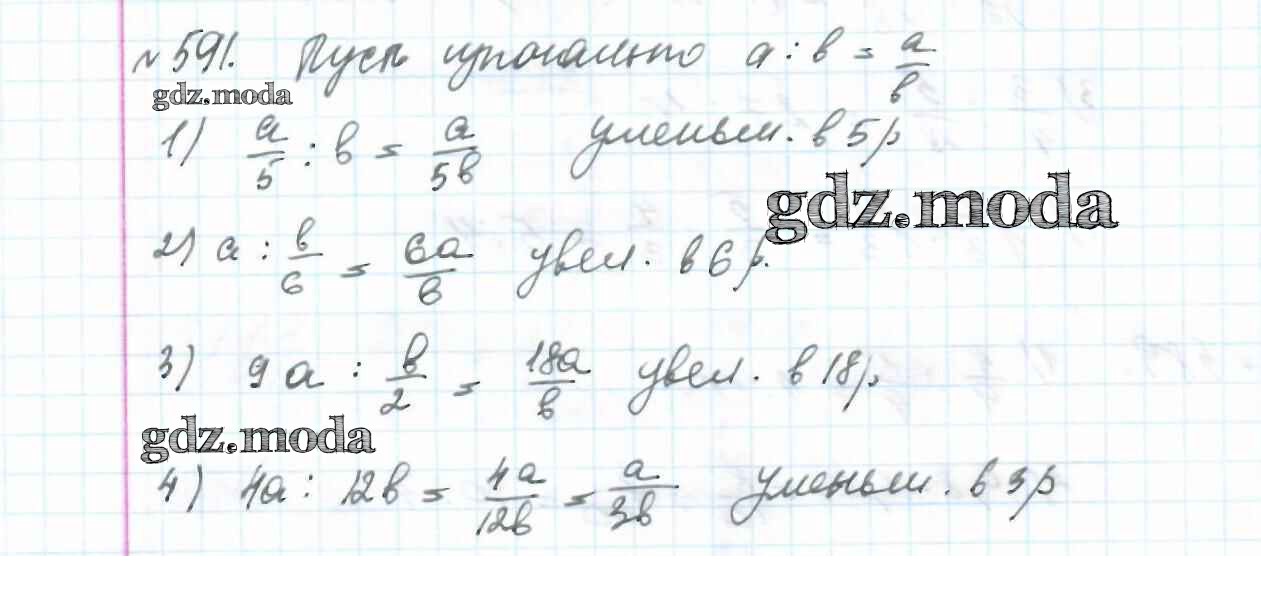 №591. Пусть изначально a : b = a/b
gdz.moda
1) a/5 : b = a/5b уменьш. в 5 р
gdz.moda
2) a : b/6 = 6a/b увел. в 6 р.
3) 9a : b/2 = 18a/b увел. в 18 р.
gdz.moda
4) 4a : 12b = 4a/12b = a/3b уменьш. в 3 р